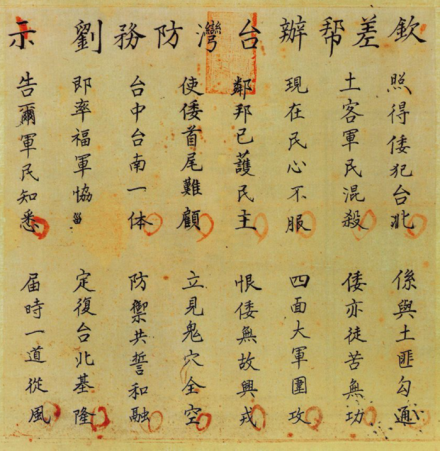 欽差幫辦台灣防務劉示
照得倭犯台北 係與土匪勾通
土客軍民混殺 倭亦徒苦無功
現在民心不服 四面大軍圍攻
鄰邦已護民主 恨倭無故興戎
使倭首尾難顧 立見鬼穴全空
台中台南一体 防禦共誓和融
即率福軍協 定復台北基隆
告爾軍民知悉 届時一道從風